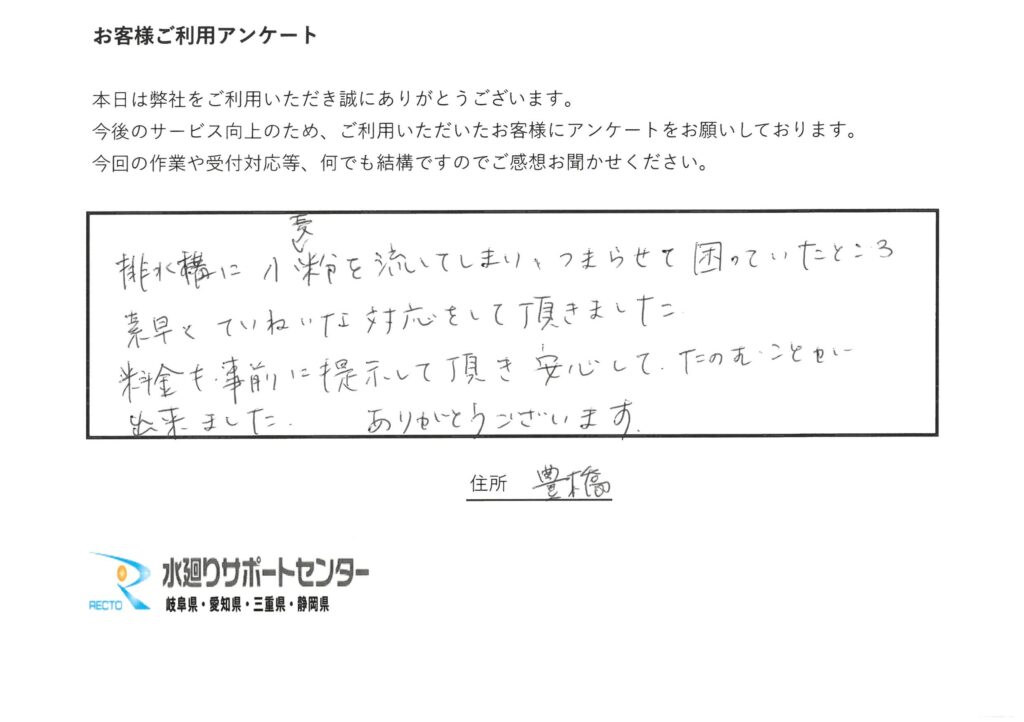 お客様ご利用アンケート
本日は弊社をご利用いただき誠にありがとうございます。
今後のサービス向上のため、ご利用いただいたお客様にアンケートをお願いしております。
今回の作業や受付対応等、何でも結構ですのでご感想お聞かせください。
排水構に小麦粉を流してしまい、つまらせて困っていたところ
素早くていねいな対応をして頂きました
料金も事前に提示して頂き安心して、たのむことが
出来ました. ありがとうございます.
住所 豊橋
RECTO 水廻りサポートセンター
岐阜県・愛知県・三重県・静岡県